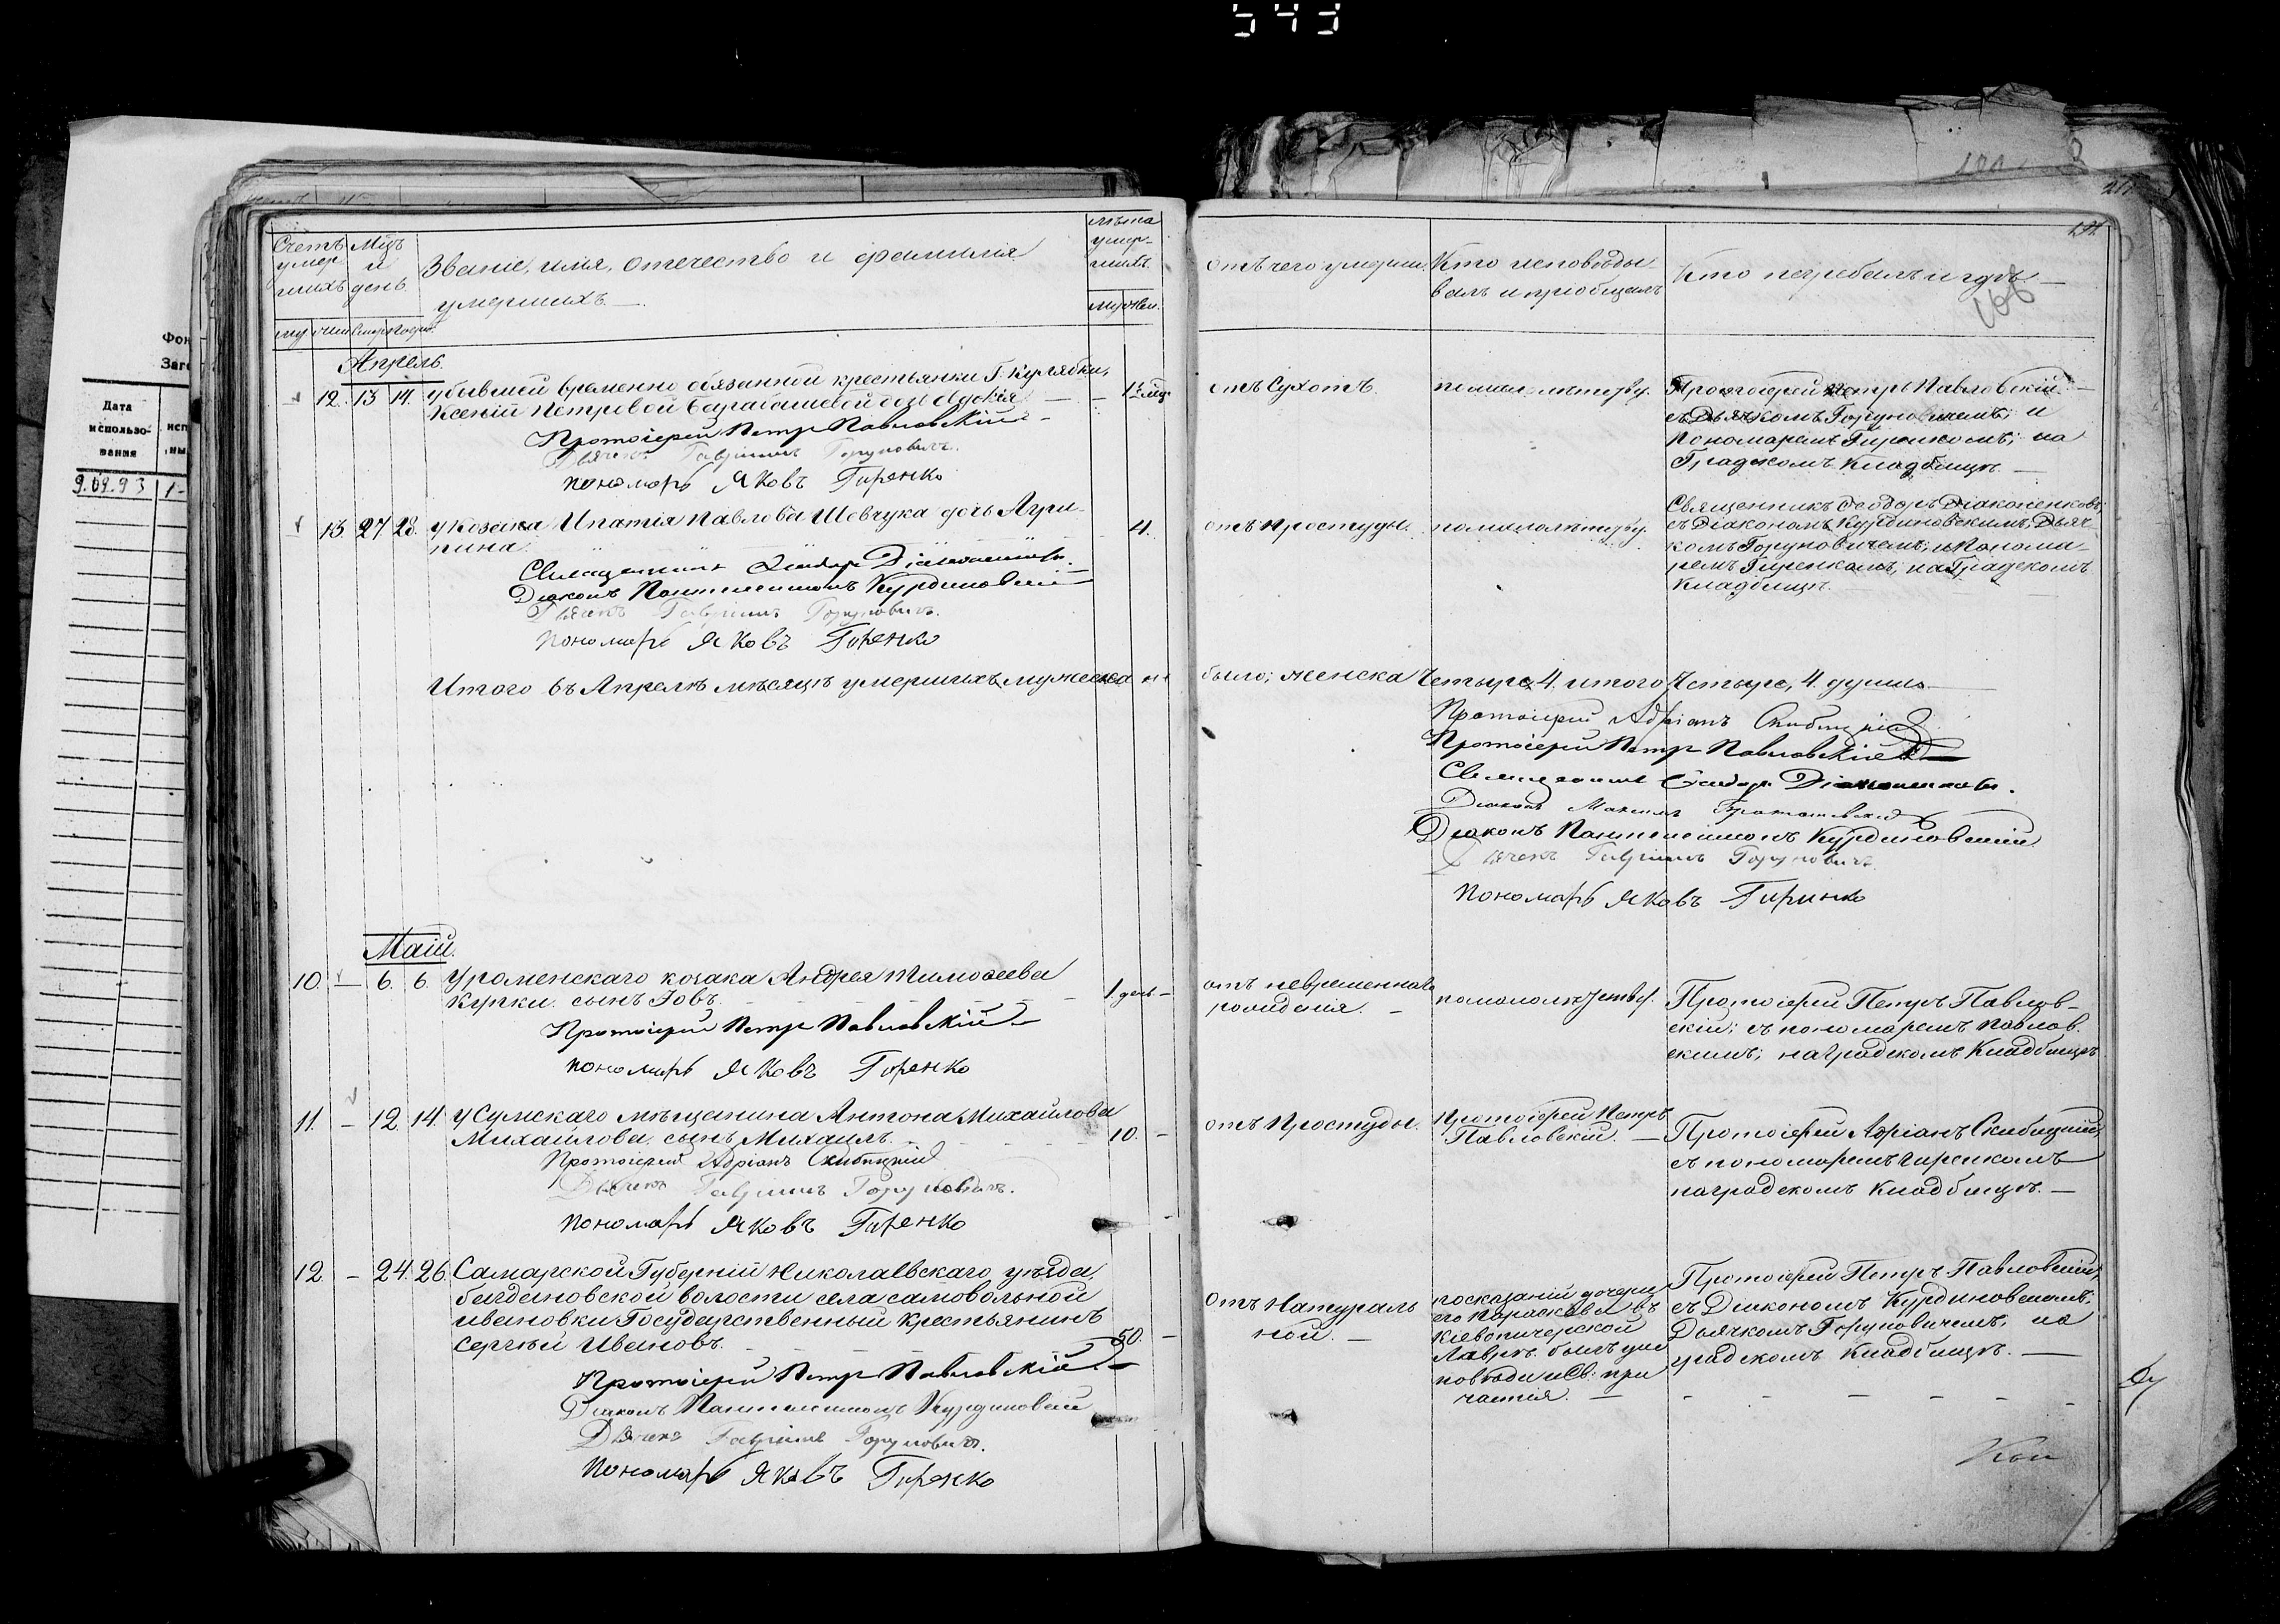 543
Фон
Заго
Дата
использо-
вания
исп
ны
9.09.93
1-
Счетъ
умер
шихъ
Мцъ
и
день.
Званіе, имя, отечество и фамилія
умершихъ.
лѣта
умер-
шихъ.
муж
жен
смер
погр
муж
жен.
Апрель.
12. 13 14. у бывшей временно обязанной крестьянки Г. Кулябки,
Ксеніи Петровой дочь
Протоіерей Петръ Павловскій
Дьячекъ Гавріилъ Горуновичъ.
пономарь Яковъ Гиренко
13. 27 28. у козака Ипатія Павлова Шевчука дочь Агри-
пина. 4.
Священникъ Діаконенковъ.
Діаконъ Пантелеимонъ Курдиновскій
Дьячекъ Гавріилъ Горуновичъ.
пономарь Яковъ Гиренко
Итого въ Апрелѣ мѣсяцѣ умершихъ мужеска не
Маій.
10. — 6. 6. У роменскаго козака Андрея Тимофеева
Купки сынъ Іовъ. 1 день —
Протоіерей Петръ Павловскій
пономарь Яковъ Гиренко
11. — 12. 14. у Сумскаго мѣщанина Антона Михайлова
Михайлова сынъ Михаилъ. 10. —
Протоіерей Адріанъ Скибицкій
Дьячекъ Гавріилъ Горуновичъ.
пономарь Яковъ Гиренко
12. — 24. 26. Самарской Губерніи Николаевскаго уѣзда,
волости села самовольной
ивановки Государственный крестьянинъ
Сергѣй Ивановъ. 50. —
Протоіерей Петръ Павловскій
Діаконъ Пантелеимонъ Курдиновскій
Дьячекъ Гавріилъ Горуновичъ.
пономарь Яковъ Гиренко
отъ чего умерли.
Кто исповѣды
валъ и пріобщалъ
Кто погребалъ и гдѣ
166
отъ Сухотъ.
Протоіерей Петръ Павловскій
съ Дьячкомъ Горуновичемъ; и
пономаремъ Гиренкомъ; на
Градскомъ Кладбищѣ. —
отъ простуды.
Священникъ Феодоръ Діаконенковъ;
съ Діакономъ Курдиновскимъ; Дьяч
комъ Горуновичемъ; и Понома-
ремъ Гиренкомъ; на Градскомъ
Кладбищѣ.
было; женска Четыре, 4. итого Четыре, 4. душъ.
Протоіерей Адріанъ Скибицкій
Протоіерей Петръ Павловскій
Священникъ Діаконенковъ.
Діаконъ Максимъ
Діаконъ Пантелеимонъ Курдиновскій
Дьячекъ Гавріилъ Горуновичъ
пономарь Яковъ Гиренко
отъ невременнаго
рожденія. —
Протоіерей Петръ Павлов-
скій; съ пономаремъ Павлов
скимъ; на градскомъ Кладбищѣ
отъ Простуды.
Протоіерей Петръ
Павловскій. —
Протоіерей Адріанъ Скибицкій,
съ пономаремъ Гиренкомъ
на градскомъ Кладбищѣ. —
Отъ Натураль
ной. —
по сказаній дочери
его Параскевы въ
Кіевопичерской
Лаврѣ былъ у ис
повѣди и Св: при
частія. —
Протоіерей Петръ Павловскій,
съ Діакономъ Курдиновскимъ;
Дьячкомъ Горуновичемъ; на
градскомъ Кладбищѣ. —